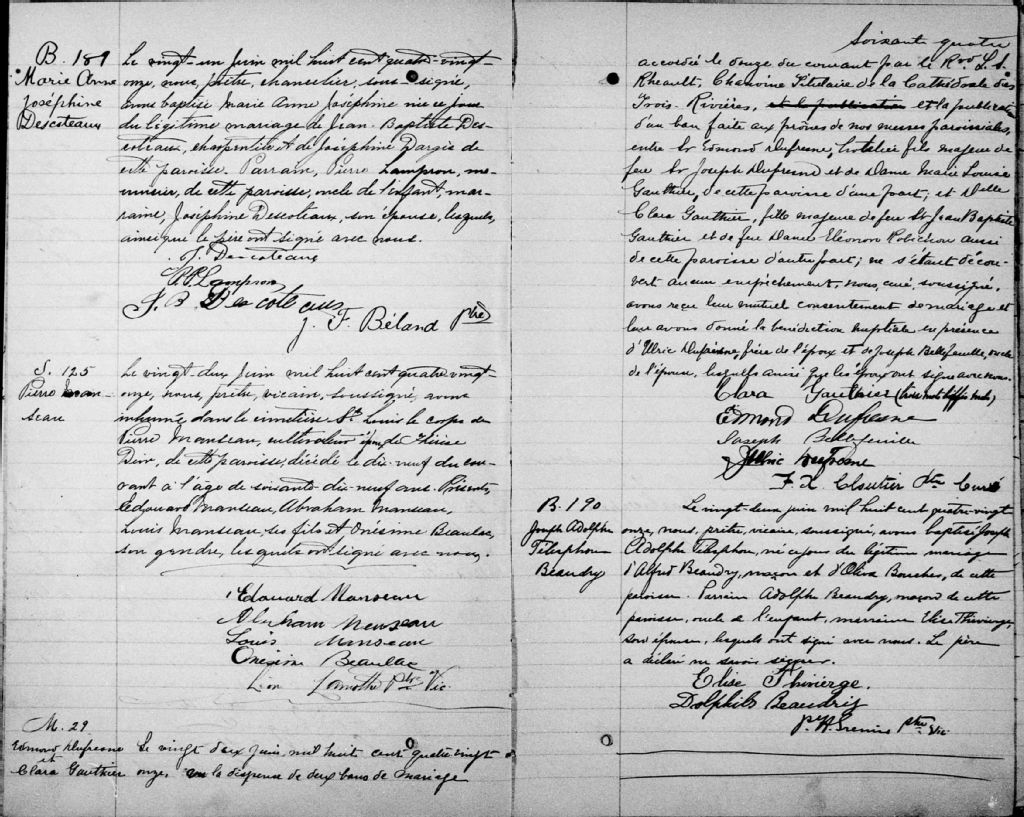 B. 189
Marie Anne
Joséphine
Descoteaux
Le vingt un Juin mil huit cent quatre-vingt
onze, nous, prêtre, chancelier, sous-signé,
avons baptisé Marie Anne Joséphine née ce jour
du légitime mariage de Jean-Baptiste Des-
coteaux, charpentier et de Joséphine Dargis de
cette paroisse. Parrain, Pierre Lampron, me-
nuisier, de cette paroisse, oncle de l'enfant, mar-
raine, Joséphine Descoteaux, son épouse, lesquels,
ainsi que le père ont signé avec nous.
J. Descoteaux
P. Lampron
J. B. Descoteaux
J. F. Béland Ptre
S. 125
Pierre Man-
seau
Le vingt-deux Juin mil huit cent quatre vingt-
onze, nous, prêtre, vicaire, soussigné, avons
inhumé dans le cimetière St Louis le corps de
Pierre Manseau, cultivateur époux de Thérèse
de cette paroisse, décédé le dix-neuf du cou-
rant à l'âge de soixante-dix-neuf ans. Présents,
Edouard Manseau, Abraham Manseau,
Louis Manseau, ses fils et Onésime Beaulac,
son gendre, lesquels ont signé avec nous.
Edouard Manseau
Abraham Manseau
Louis Manseau
Onésime Beaulac
Lamothe Ptre Vic.
M. 29
Edmond Dufresne
et
Clara Gauthier
Le vingt deux juin mil huit cent quatre-vingt
onze, vu la dispense de deux bans de mariage
Soixante quatre
accordée le douze du courant par le Rev. L. S.
Rheault, Chanoine Titulaire de la Cathédrale des
Trois-Rivières, et la publication et la publication
d'un ban faite aux prônes de nos messes paroissiales,
entre Sr Edmond Dufresne, hôtelier fils majeur de
feu Sr Joseph Dufresne et de Dame Marie Louise
Gauthier, de cette paroisse d'une part; et Delle
Clara Gauthier, fille majeure de feu Sr Jean Baptiste
Gauthier et de feu Dame Eléonore Robichon aussi
de cette paroisse d'autre part; ne s'étant décou-
vert aucun empêchement, nous, curé, soussigné,
avons reçu leur mutuel consentement de mariage et
leur avons donné la bénédiction nuptiale en présence
d'Ulric Dufresne, frère de l'époux et de Joseph Bellefeuille, oncle
de l'épouse, lesquels ainsi que les époux ont signé avec nous.
Clara Gauthier (trois mots biffés nuls)
Edmond Dufresne
Joseph Bellefeuille
Ulric Dufresne
F. X. Cloutier Ptre Curé
B. 190
Joseph Adolphe
Télesphore
Beaudry
Le vingt-deux juin mil huit cent quatre-vingt
onze, nous, prêtre, vicaire, soussigné, avons baptisé Joseph
Adolphe Télesphore, né ce jour du légitime mariage
d'Alfred Beaudry, maçon et d'Oliva Bourches, de cette
paroisse. Parrain Adolphe Beaudry, maçon de cette
paroisse, oncle de l'enfant, marraine Elise Thivierge,
son épouse, lesquels ont signé avec nous. Le père
a déclaré ne savoir signer.
Elise Thivierge.
Dolphis Beaudry
Ptre Vic.